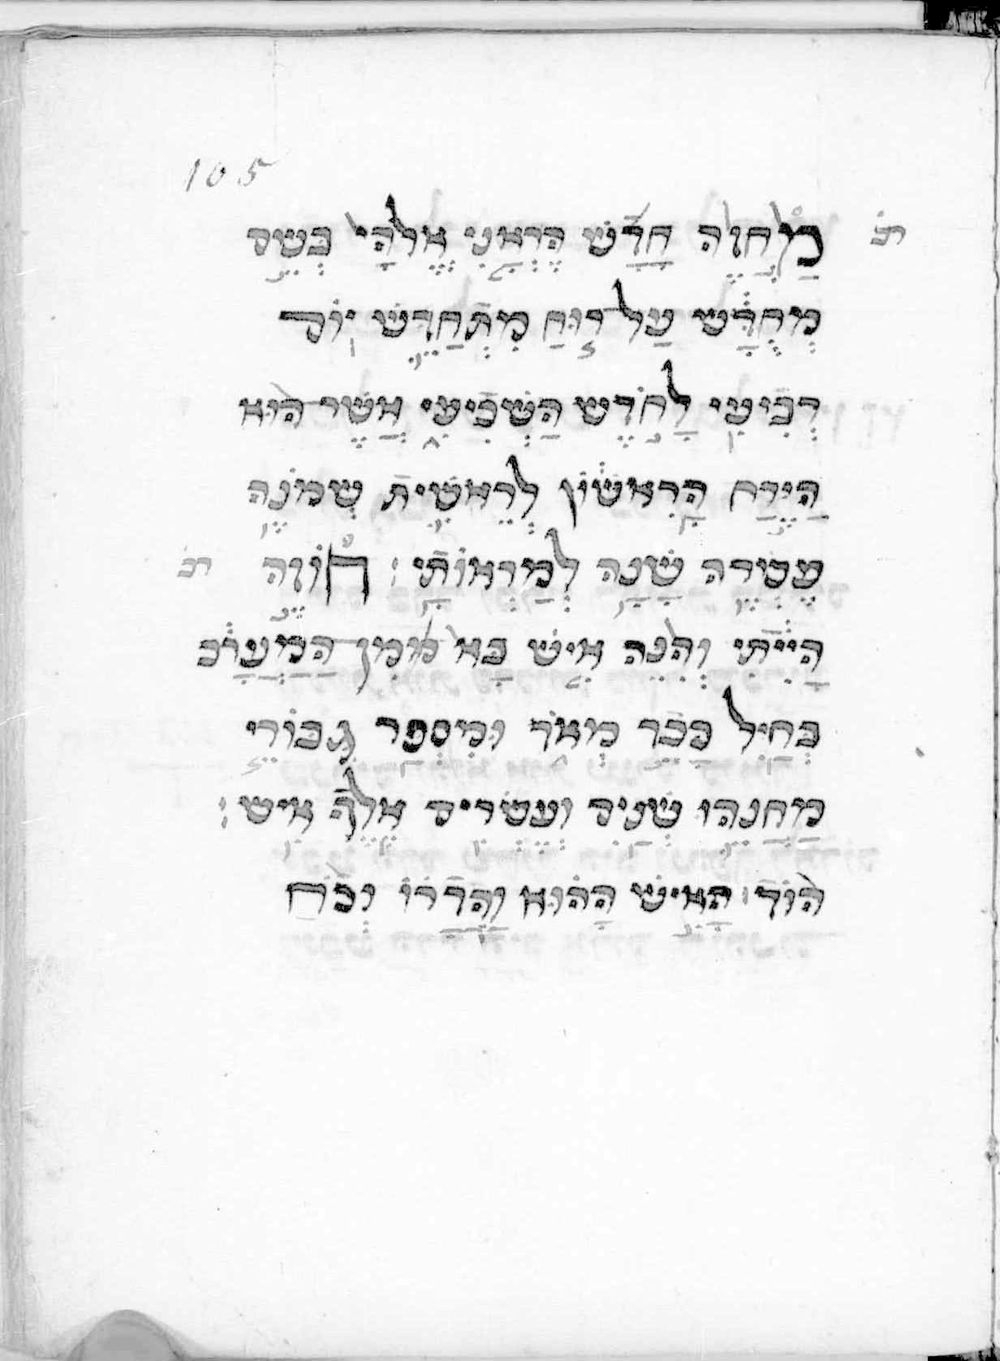 105
מַחֲזֶה חָדָשׁ הֶרְאַנִי אֱלֹהָי בְּשֵׁם
מְחֻדָּשׁ עַל רוּחַ מִתְחַדֵּשׁ יוֹם
רְבִיעִי לַחֹדֶשׁ הַשְּׁבִיעִי אֲשֶׁר הוּא
הַיֶּרַח הָרִאשׁוֹן לְרֵאשִׁית שְׁמֹנֶה
עֶשְׂרֵה שָׁנָה לְמַרְאוֹתָי׃ חוֹזֶה
הָיִיתִי וְהִנֵּה אִישׁ בָּא מִמִּן הַמַּעֲרָב
בְּחַיִל כָּבֵד מְאֹד וּמִסְפַּר גִּבּוֹרֵי
מַחֲנֵהוּ שְׁנַיִם וְעֶשְׂרִים אֶלֶף אִישׁ׃
הוֹד הָאִישׁ הַהוּא וַהֲדָרוֹ וְכֹחַ